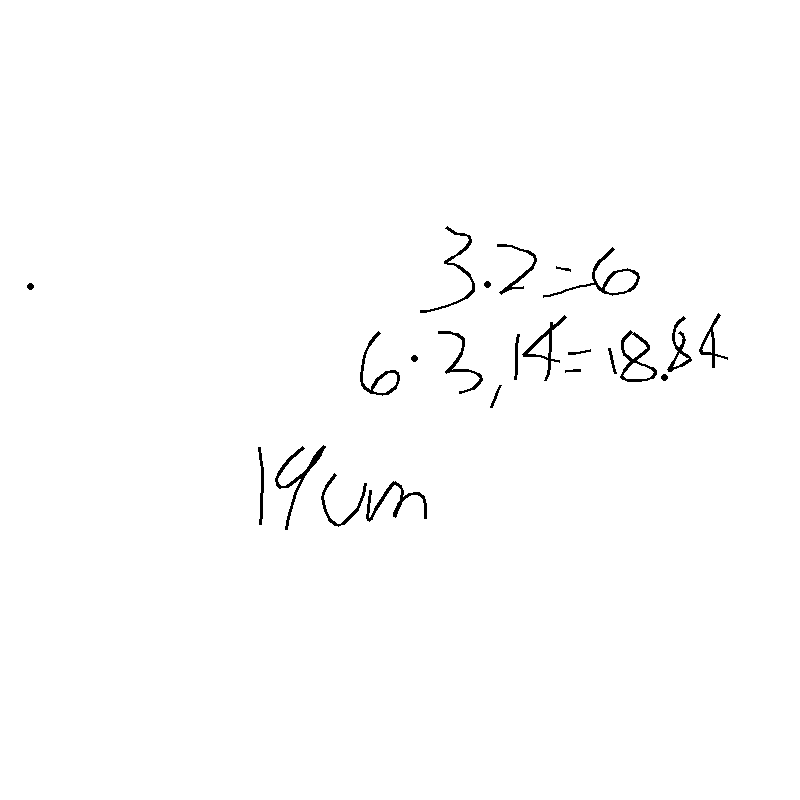 3.2=6
6.3,14=18.84
19cm